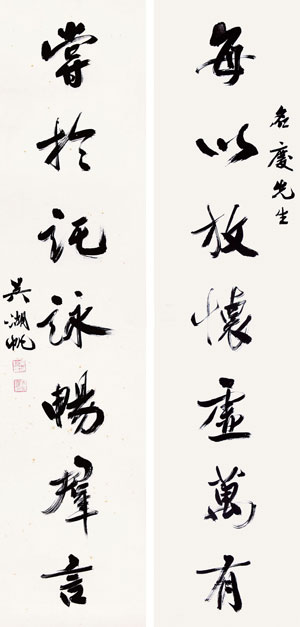 慶先生
每以放懷虛萬有
嘗於託詠暢羣言
吳湖帆